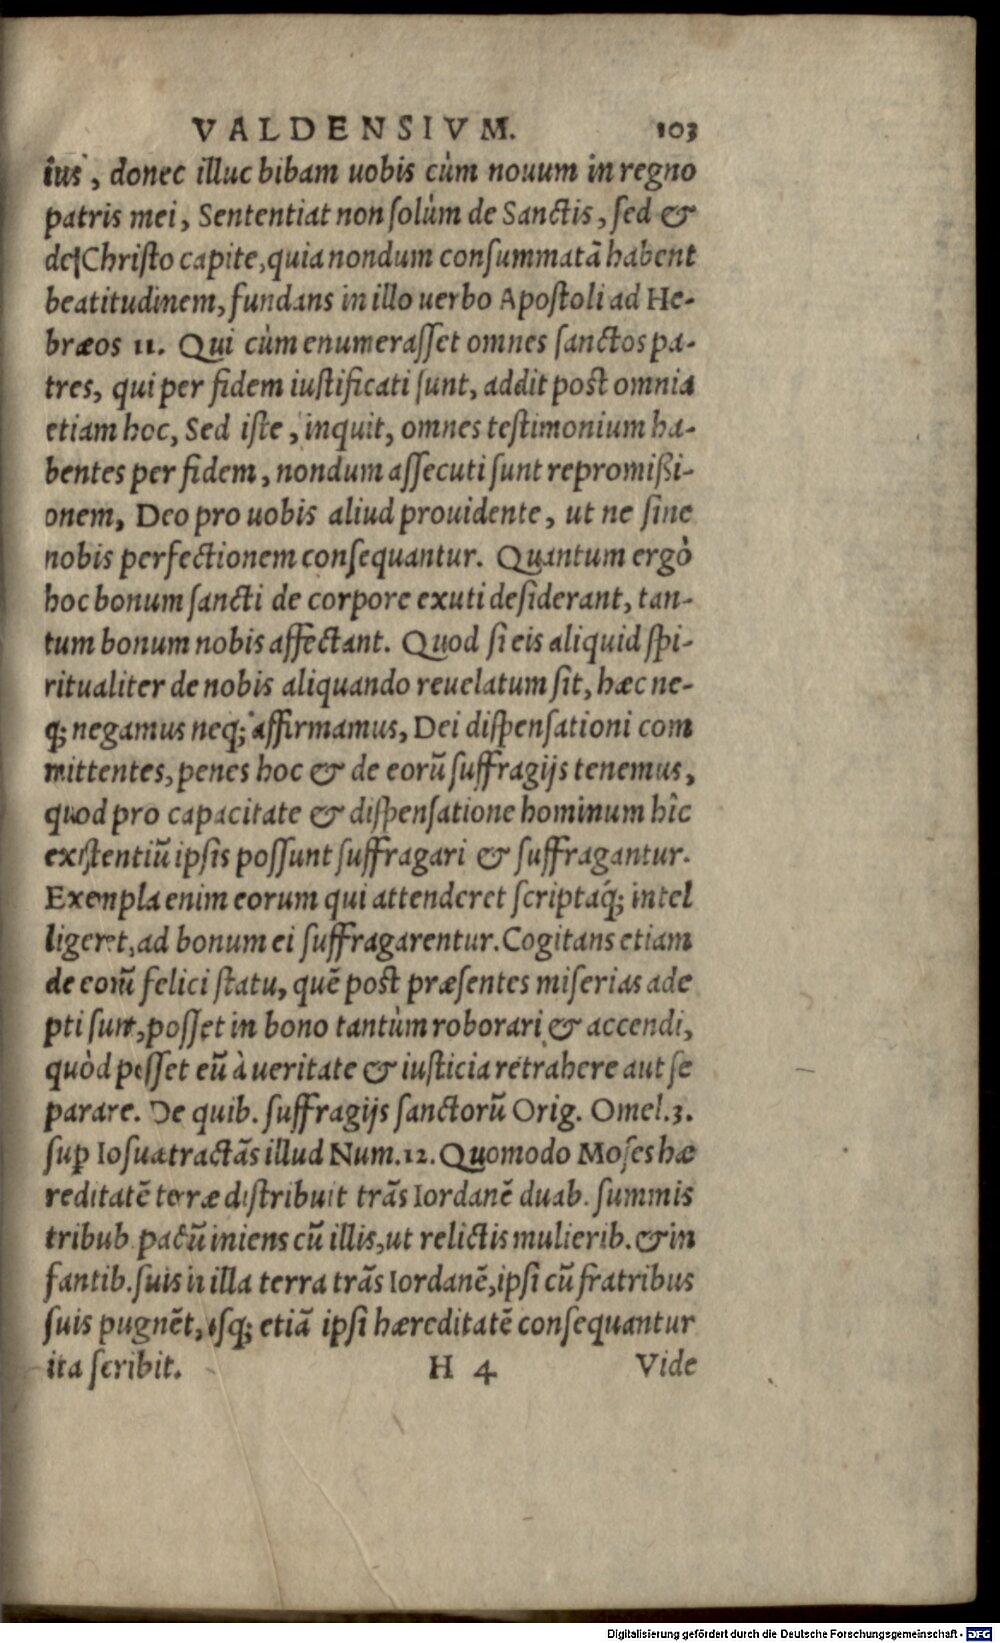 VALDENSIVM. 103
ius, donec illuc bibam uobis cùm nouum in regno
patris mei, Sententiat non solùm de Sanctis, sed &
de Christo capite, quia nondum consummatã habent
beatitudinem, fundans in illo uerbo Apostoli ad He-
bræos 11. Qui cùm enumerasset omnes sanctos pa-
tres, qui per fidem iustificati sunt, addit post omnia
etiam hoc, Sed iste, inquit, omnes testimonium ha-
bentes per fidem, nondum assecuti sunt repromißi-
onem, Deo pro uobis aliud prouidente, ut ne sine
nobis perfectionem consequantur. Quantum ergò
hoc bonum sancti de corpore exuti desiderant, tan-
tum bonum nobis affectant. Quod si eis aliquid spi-
ritualiter de nobis aliquando reuelatum sit, hæc ne-
q; negamus neq; affirmamus, Dei dispensationi com
mittentes, penes hoc & de eorũ suffragijs tenemus,
quod pro capacitate & dispensatione hominum hîc
existentiũ ipsis possunt suffragari & suffragantur.
Exempla enim eorum qui attenderet scriptaq́; intel
ligeret, ad bonum ei suffragarentur. Cogitans etiam
de eorũ felici statu, quẽ post præsentes miserias ade
pti sunt, posset in bono tantùm roborari & accendi,
quòd posset eũ à ueritate & iusticia retrahere aut se
parare. De quib. suffragijs sanctorũ Orig. Omel. 3.
sup̱ Iosua tractãs illud Num. 12. Quomodo Moses hæ
reditatẽ terræ distribuit trãs Iordanẽ duab. summis
tribub. pactũ iniens cũ illis, ut relictis mulierib. & in
fantib. suis in illa terra trãs Iordanẽ, ipsi cũ fratribus
suis pugnẽt, usq; etiã ipsi hæreditatẽ consequantur
ita scribit. H 4 Vide
Digitalisierung gefördert durch die Deutsche Forschungsgemeinschaft - DFG